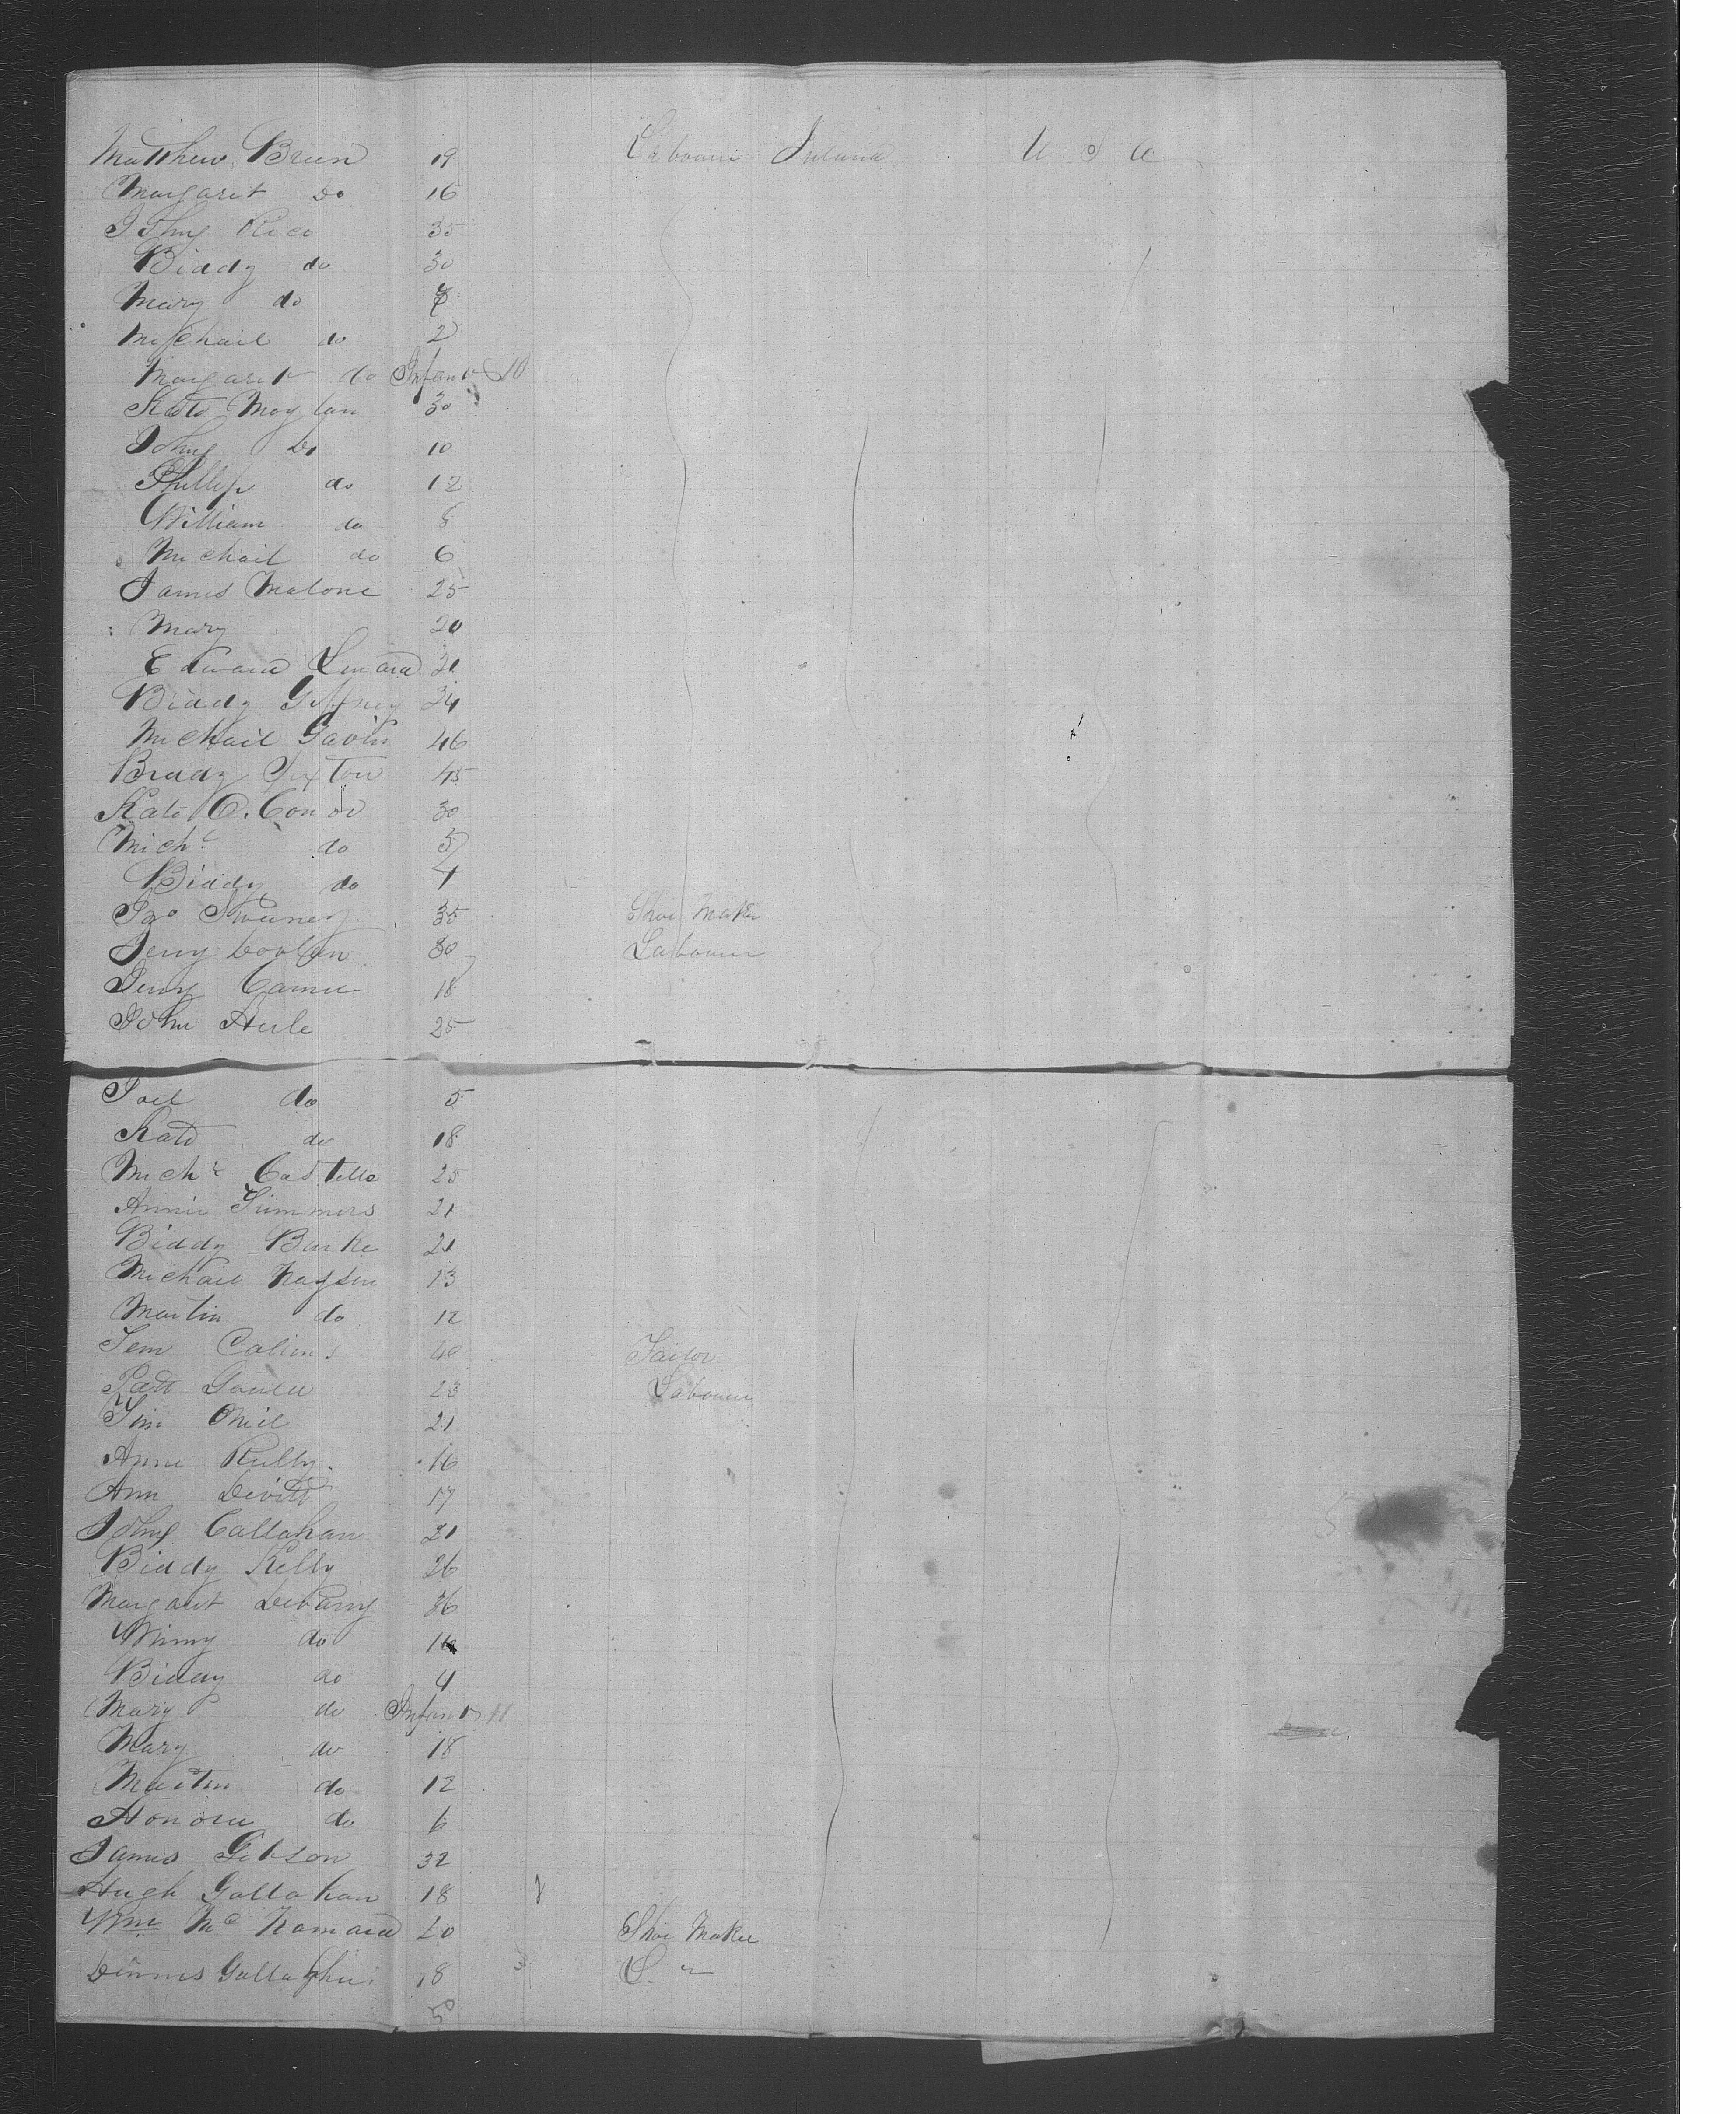 Matthew Breen 19 Labourer Ireland U S A
Margaret Do 16
John Rice 35
Biddy do 30
Mary do
Michail do 2
Margaret do Infant 10
Kate Moylan 30
John Do 10
Phillip do 12
William do 8
Michail do 6
James Malone 25
Mary 20
Edward Lenard 21
Biddy Geffney 24
Michail Gavin 46
Bridy Sexton 45
Kate O. Conor 30
Michl do 5
Biddy do 4
Jno Sweeney 35 Shoe Maker
Jerry Coolen 30 Labourer
Jerry 18
John 25
Joel do 5
Kate do 18
Michl Castello 25
Annie Simmers 21
Biddy Burke 21
Michail 13
Martin do 12
Jem Collins 40 Tailor
Patt Gould 23 Labourer
Tim Oneil 21
Anne Reilly 16
Ann Devitt 17
John Callahan 21
Biddy Kelly 26
Margaret 36
Winny do
Biddy do 4
Mary do Infant 11
Mary do 18
Martin do 12
Honora do 6
James Gibson 32
Hugh Gallahan 18
Wm Mc Namara 20 Shoe Maker
Dennis Gallagher 18 L. "
50